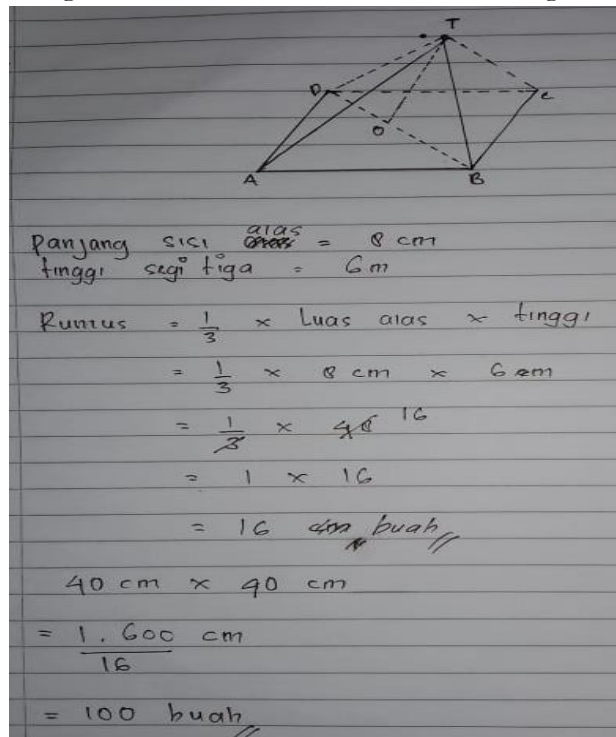 T
D
C
O
A
B
alas
Panjang sisi = 8 cm
tinggi segi tiga = 6 m
Rumus = 1/3 × Luas alas × tinggi
= 1/3 × 8 cm × 6 cm
= 1/3 × 48 16
= 1 × 16
= 16 buah //
40 cm × 40 cm
= 1.600 cm
16
= 100 buah //